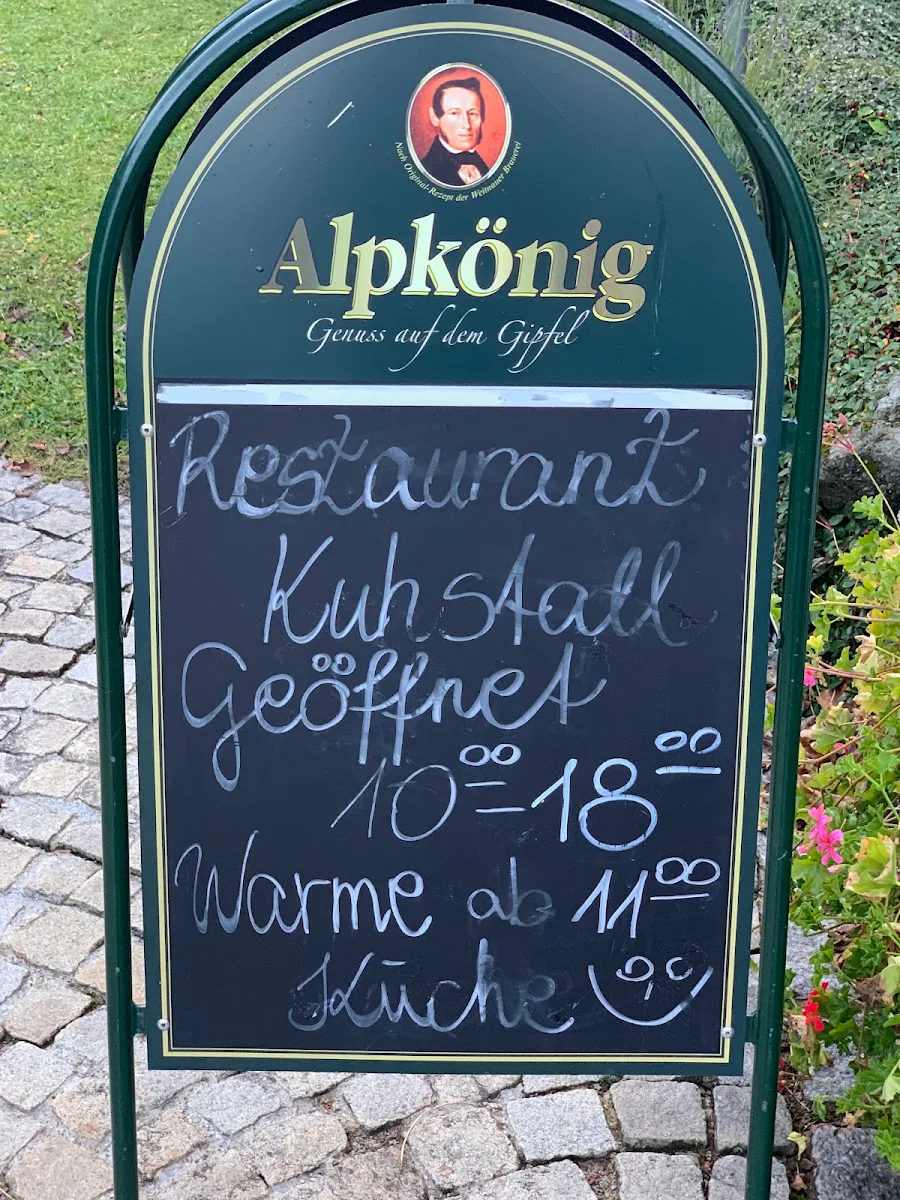 Nach Original-Rezept der Weitnauer Brauerei
Alpkönig
Genuss auf dem Gipfel
Restaurant
Kuhstall
Geöffnet
10⁰⁰ - 18⁰⁰
Warme ab 11⁰⁰
Küche